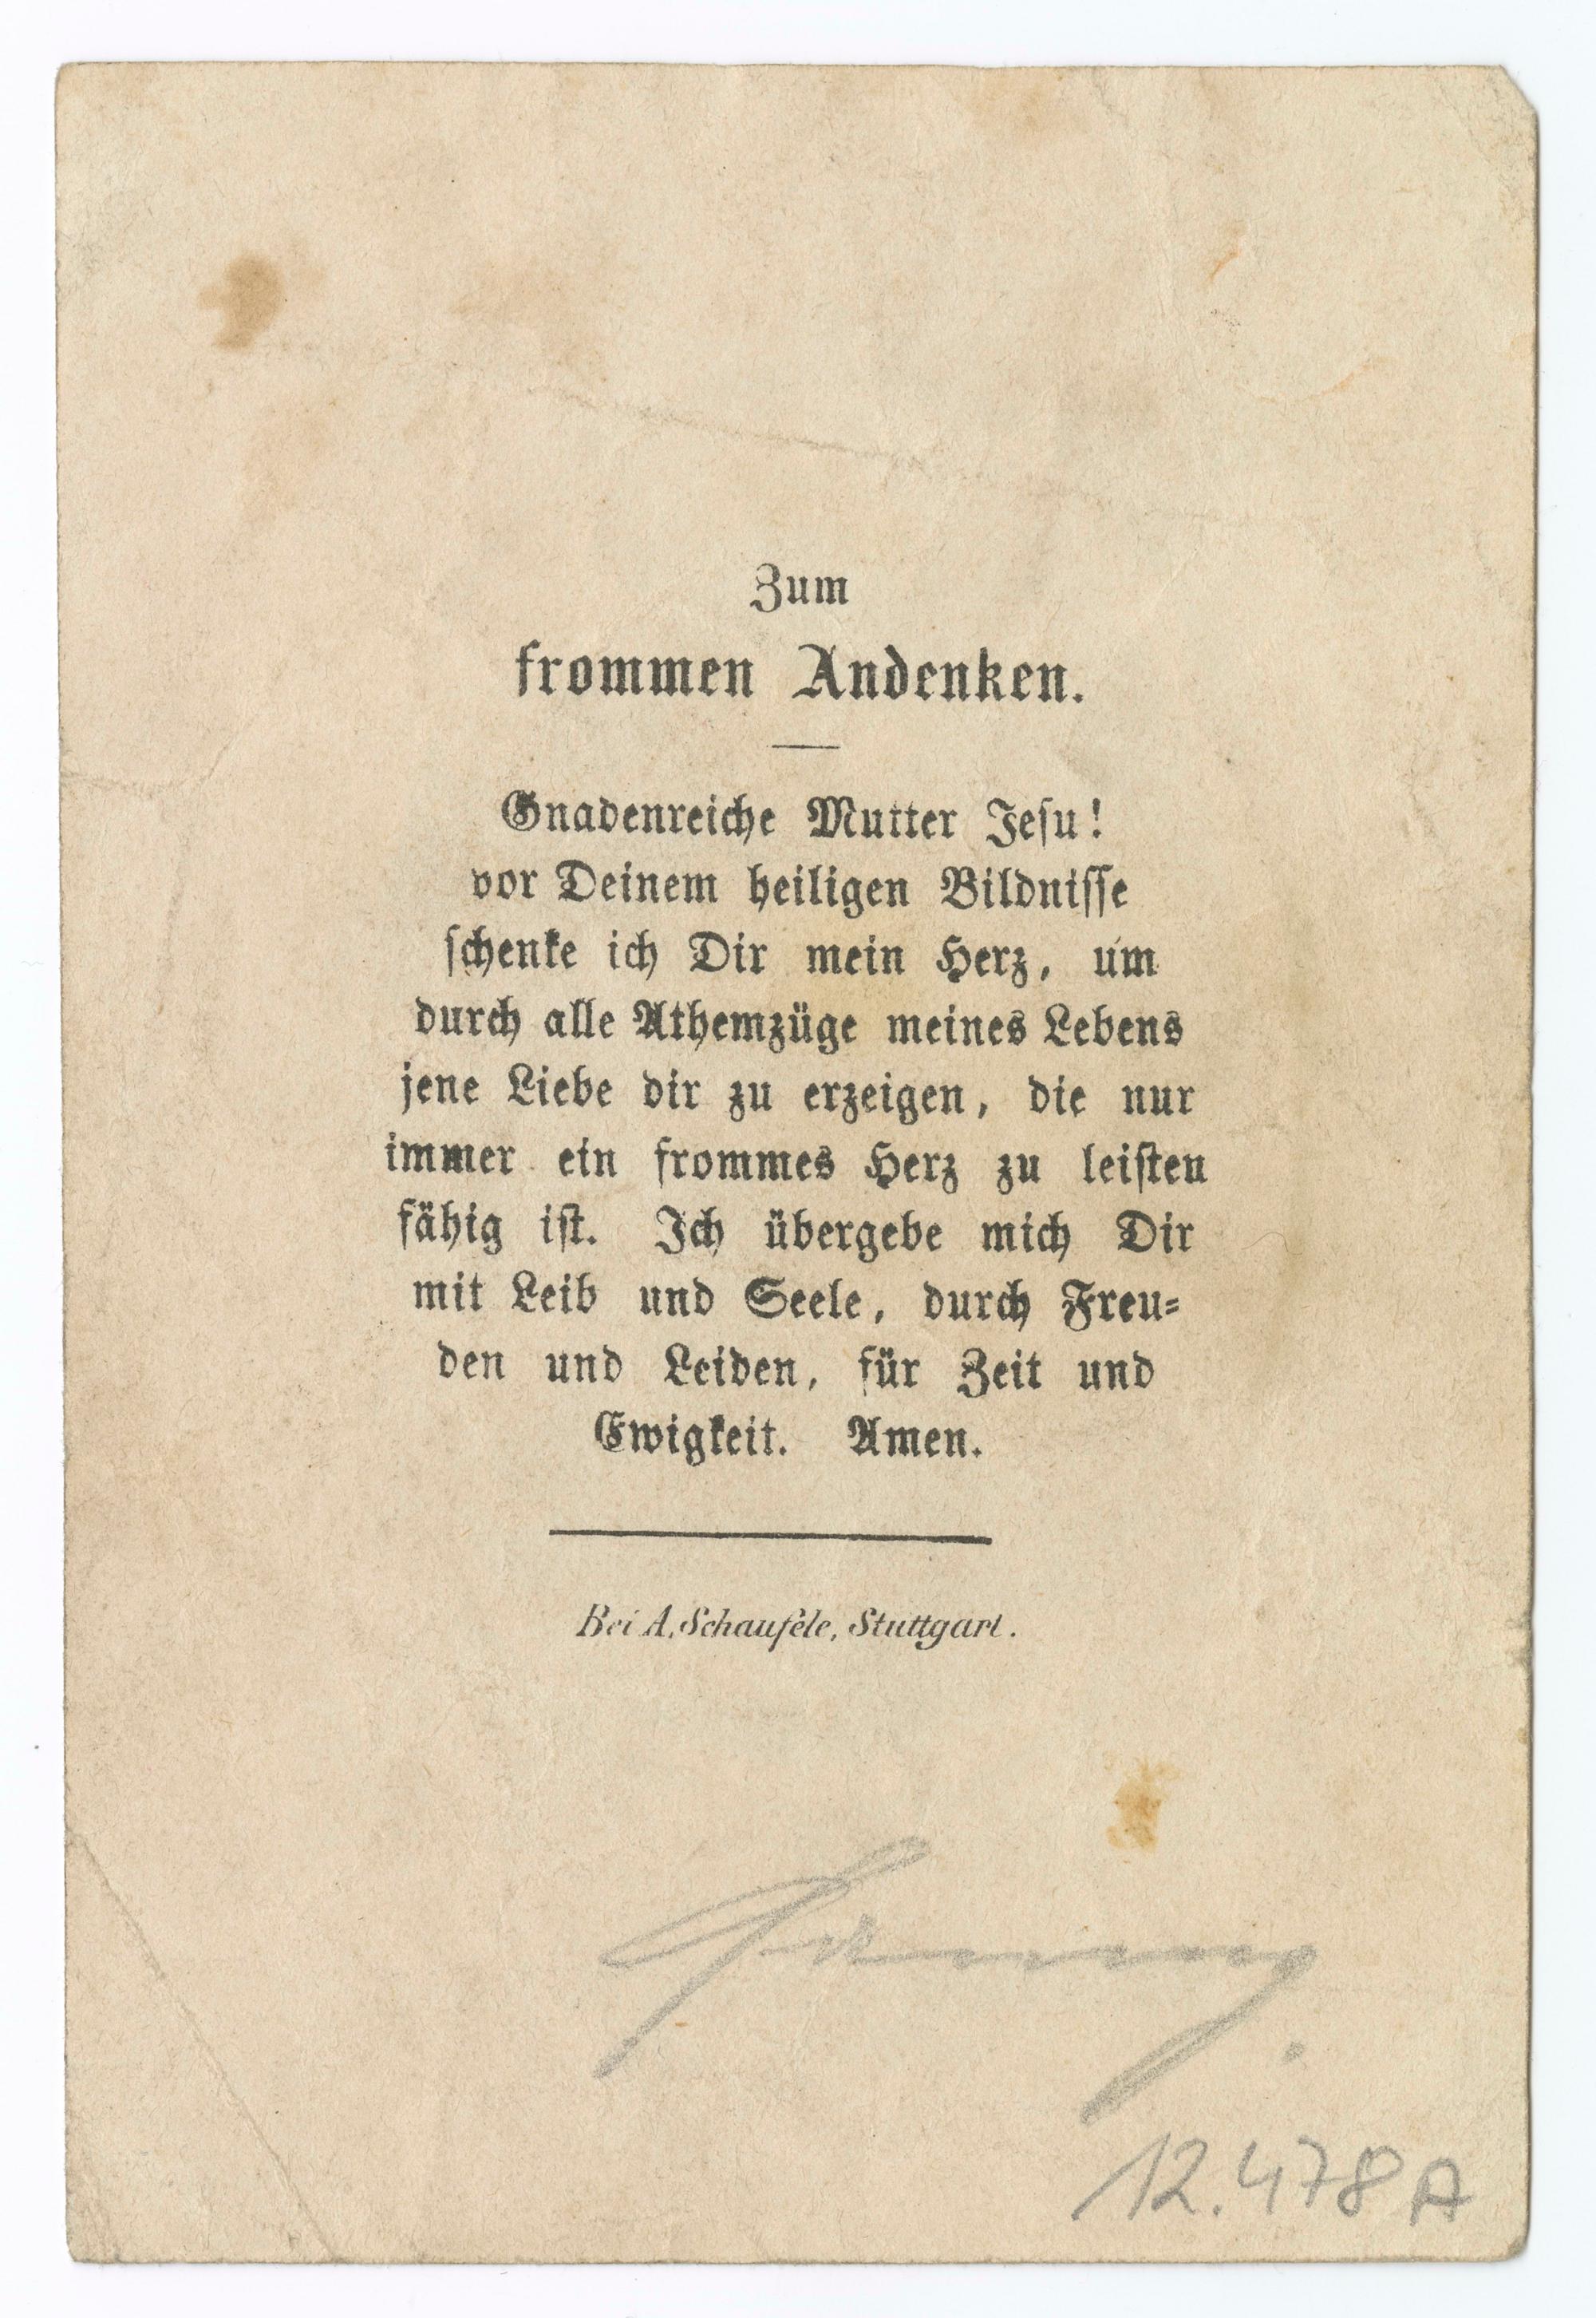 Zum
frommen Andenken.
Gnadenreiche Mutter Jesu!
vor Deinem heiligen Bildnisse
schenke ich Dir mein Herz, um
durch alle Athemzüge meines Lebens
jene Liebe dir zu erzeigen, die nur
immer ein frommes Herz zu leisten
fähig ist. Ich übergebe mich Dir
mit Leib und Seele, durch Freu-
den und Leiden, für Zeit und
Ewigkeit. Amen.
Bei A. Schaufele, Stuttgart.
12.478 A